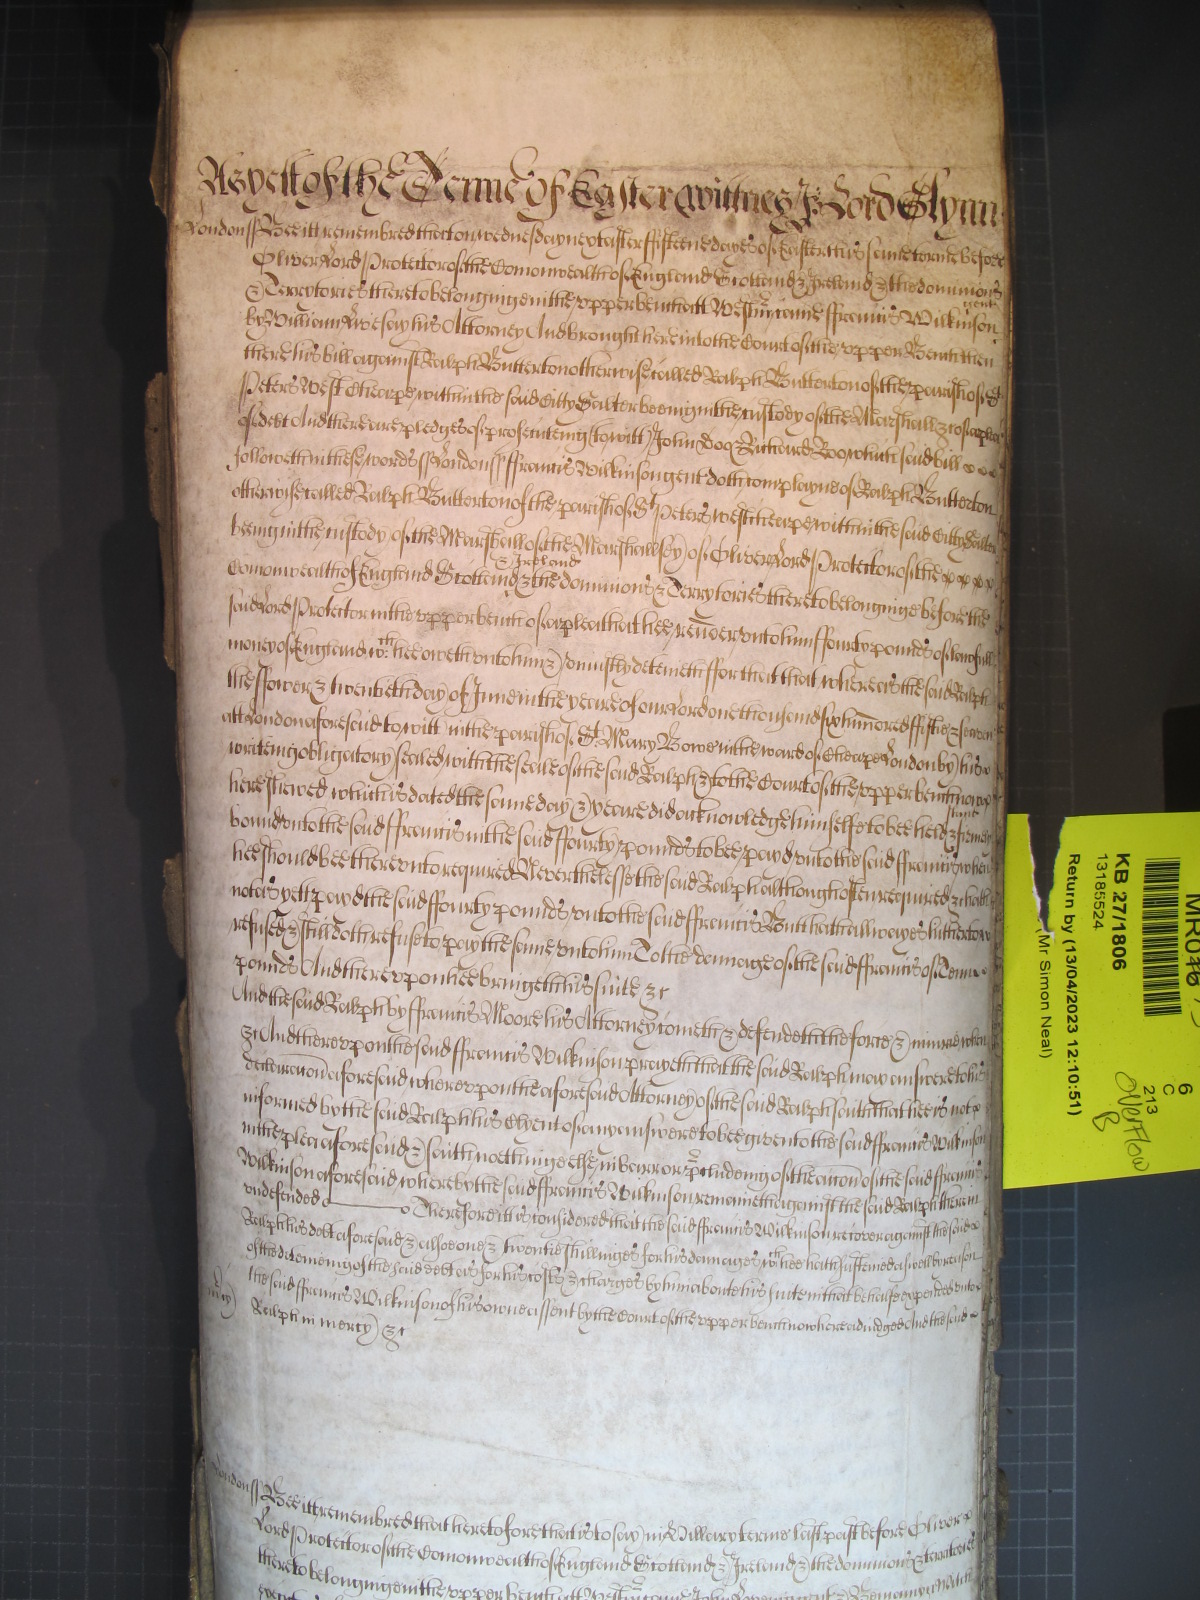 As yett of the Terme of Easter Wittnes J: Lord Glynn
London ss Bee itt remembred that on wednesday next after ffifteene dayes of Easter this same terme before
Oliver Lord Protector of the Comonwealth of England Scotland & Ireland & the dominions
& Terrytories thereto belonginge in the upper bench att Westmr came ffrancis Wilkinson gent
by William his Attorney And brought here into the Court of the upper Bench then
there his bill against Ralph Butterton otherwise called Ralph Butterton of the parish of St
Peters West Cheape within the said Citty Salter beeing in the custody of the Marshall &c of a plea
of debt And there are pledges of prosecuteing (to witt) John Doe & Richard Roe which said bill
followeth in these words ss London ss ffrancis Wilkinson gent doth complayne of Ralph Butterton
otherwise called Ralph Butterton of the parish of St Peters west cheape within the said Citty Salter
beeing in the custody of the Marshall of the Marshallsey of Oliver Lord Protector of the
Comonwealth of England Scotland & Ireland & the dominions & Terrytories thereto belonginge before the
said Lord Protector in the upper bench of a plea that hee render unto him ffourty pounds of lawfull
money of England wch hee oweth unto him & uniustly deteineth ffor that that whereas the said Ralph
the ffower & twentieth day of June in the yeare of our Lord one thousand six hundred ffiftie & seaven
att London aforesaid to witt in the parish of St Mary Bowe in the ward of Cheape London by his
writeing obligatory sealed with the seale of the said Ralph & to the Court of the upper bench now
here shewed which is dated the same day & yeare did acknowledge himselfe to bee held & firmely
bound unto the said ffrancis in the said ffourty pounds to bee payd unto the said ffrancis when
hee should bee thereunto required Neverthelesse the said Ralph although often required &c hath
not as yett payd the said ffourty pounds unto the said ffrancis But hath allwayes hitherto
refused & still doth refuse to pay the same unto him To the damage of the said ffrancis of Tenn
pounds And thereupon hee bringeth his suite &c
And the said Ralph by ffrancis Moore his Attorney cometh & defendeth the force & iniurie when
&c And thereupon the said ffrancis Wilkinson prayeth that the said Ralph may answere to his
declaracon aforesaid whereupon the aforesaid Attorney of the said Ralph saith that hee is not
informed by the said Ralph his Clyent of any answere to bee given to the said ffrancis Wilkinson
in the plea aforesaid & saith nothinge else in barr or precludeing of the accon of the said ffrancis
Wilkinson aforesaid whereby the said ffrancis Wilkinson remaineth against the said Ralph therein
undefended Therefore itt is considered that the said ffrancis Wilkinson recover against the said
Ralph his debt aforesaid & allsoe one & twentie shillinges for his damages wch hee hath susteined aswell by reason
of the deteineing of the said debt as for his costs & charges by him about his suite in that behalfe expended unto
the said ffrancis Wilkinson of his owne assent by the Court of the upper bench now here adiudged And the said
mcy) Ralph in mercy &c
London ss Bee itt remembred that heretofore that is to say in Hillary terme last past before Oliver
Lord Protector of the Comonwealth of England Scotland & Ireland & the dominions & territories
thereto belonginge in the upper bench att Westmr came John
MR
KB 27/1806
13185524
Return by (13/04/2023 12:10:51)
(Mr Simon Neal)
6
C
213
Overflow
B